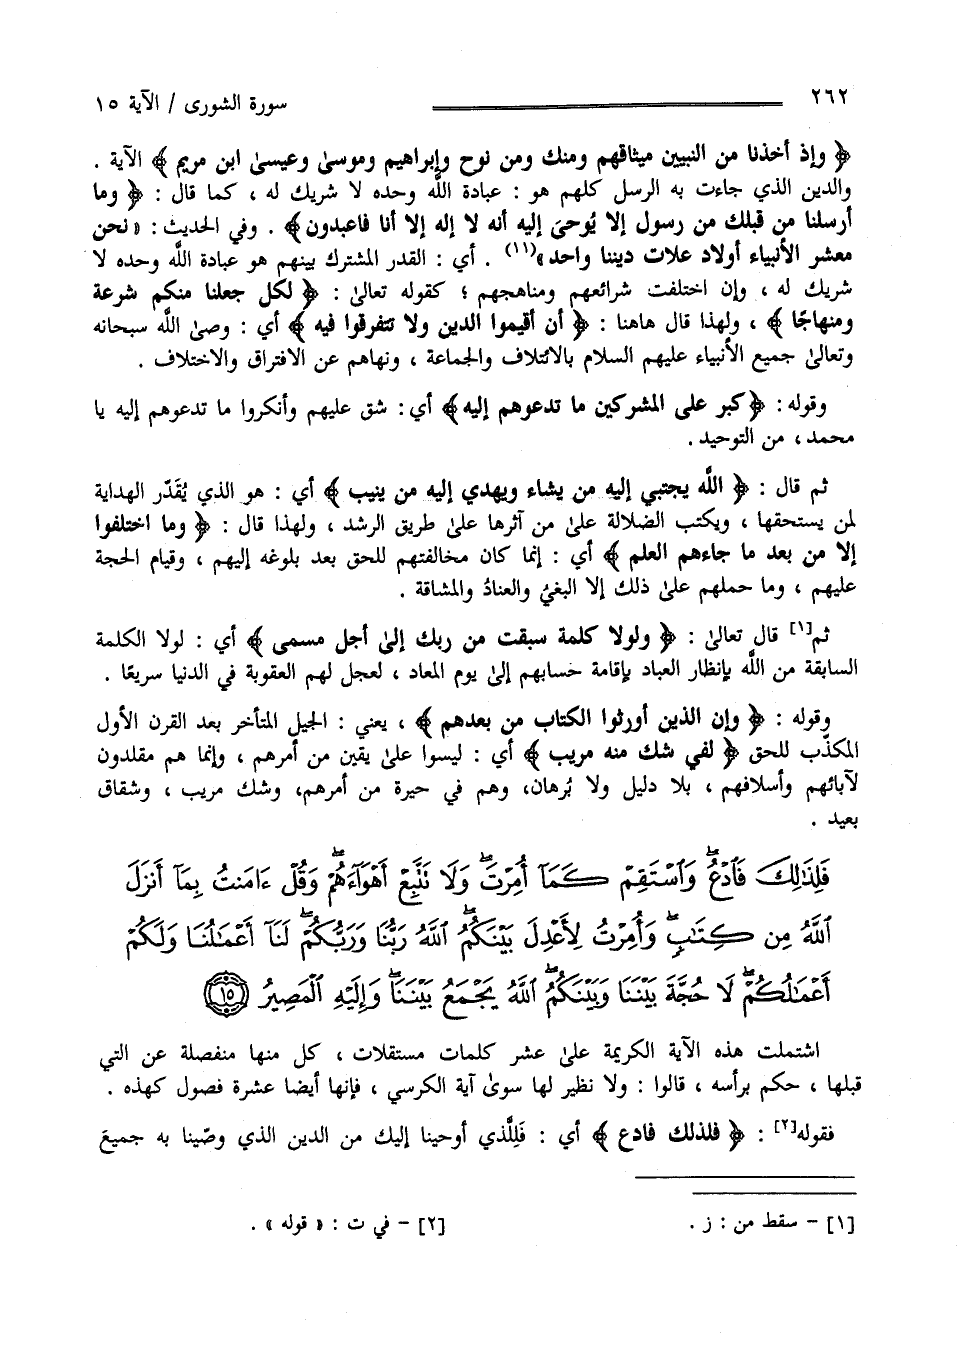 ٢٦٢
سورة الشورى / الآية ١٥
﴿ وإذ أخذنا من النبيين ميثاقهم ومنك ومن نوح وإبراهيم وموسىٰ وعيسىٰ ابن مريم ﴾ الآية .
والدين الذي جاءت به الرسل كلهم هو : عبادة اللَّه وحده لا شريك له ، كما قال : ﴿ وما
أرسلنا من قبلك من رسول إلا يُوحىَ إليه أنه لا إله إلا أنا فاعبدون﴾ . وفي الحديث : «نحن
معشر الأنبياء أولاد علات ديننا واحد»(١١) . أي : القدر المشترك بينهم هو عبادة اللَّه وحده لا
شريك له ، وإن اختلفت شرائعهم ومناهجهم ؛ كقوله تعالىٰ : ﴿ لكل جعلنا منكم شرعة
ومنهاجًا ﴾ ، ولهذا قال هاهنا : ﴿ أن أقيموا الدين ولا تتفرقوا فيه ﴾ أي : وصىٰ اللَّه سبحانه
وتعالىٰ جميع الأنبياء عليهم السلام بالائتلاف والجماعة ، ونهاهم عن الافتراق والاختلاف .
وقوله : ﴿كبر على المشركين ما تدعوهم إليه﴾ أي : شق عليهم وأنكروا ما تدعوهم إليه يا
محمد ، من التوحيد .
ثم قال : ﴿ اللَّه يجتبي إليه من يشاء ويهدي إليه من ينيب ﴾ أي : هو الذي يُقَدّر الهداية
لمن يستحقها ، ويكتب الضلالة علىٰ من آثرها علىٰ طريق الرشد ، ولهذا قال : ﴿ وما اختلفوا
إلا من بعد ما جاءهم العلم ﴾ أي : إنما كان مخالفتهم للحق بعد بلوغه إليهم ، وقيام الحجة
عليهم ، وما حملهم علىٰ ذلك إلا البغيُ والعنادُ والمشاقة .
ثم[١] قال تعالىٰ : ﴿ ولولا كلمة سبقت من ربك إلىٰ أجل مسمى ﴾ أي : لولا الكلمة
السابقة من اللَّه بإنظار العباد بإقامة حسابهم إلىٰ يوم المعاد ، لعجل لهم العقوبة في الدنيا سريعًا .
وقوله : ﴿ وإن الذين أورثوا الكتاب من بعدهم ﴾ ، يعني : الجيل المتأخر بعد القرن الأول
المكذّب للحق ﴿ لفي شك منه مريب ﴾ أي : ليسوا علىٰ يقين من أمرهم ، وإنما هم مقلدون
لآبائهم وأسلافهم ، بلا دليل ولا بُرهان، وهم في حيرة من أمرهم، وشك مريب ، وشقاق
بعيد .
فَلِذَٰلِكَ فَٱدْعُ ۖ وَٱسْتَقِمْ كَمَآ أُمِرْتَ ۖ وَلَا نَتَّبِعْ أَهْوَآءَهُمْ ۖ وَقُلْ ءَامَنتُ بِمَآ أَنزَلَ
ٱللَّهُ مِن كِتَٰبٍ ۖ وَأُمِرْتُ لِأَعْدِلَ بَيْنَكُمُ ۖ ٱللَّهُ رَبُّنَا وَرَبُّكُمْ ۖ لَنَآ أَعْمَٰلُنَا وَلَكُمْ
أَعْمَٰلُكُمْ ۖ لَا حُجَّةَ بَيْنَنَا وَبَيْنَكُمُ ۖ ٱللَّهُ يَجْمَعُ بَيْنَنَا ۖ وَإِلَيْهِ ٱلْمَصِيرُ ١٥
اشتملت هذه الآية الكريمة علىٰ عشر كلمات مستقلات ، كل منها منفصلة عن التي
قبلها ، حكم برأسه ، قالوا : ولا نظير لها سوىٰ آية الكرسي ، فإنها أيضا عشرة فصول كهذه .
فقوله[٢] : ﴿ فلذلك فادع ﴾ أي : فَلِلَّذي أوحينا إليك من الدين الذي وصّينا به جميعَ
[١] - سقط من : ز .
[٢] - في ت : « قوله » .